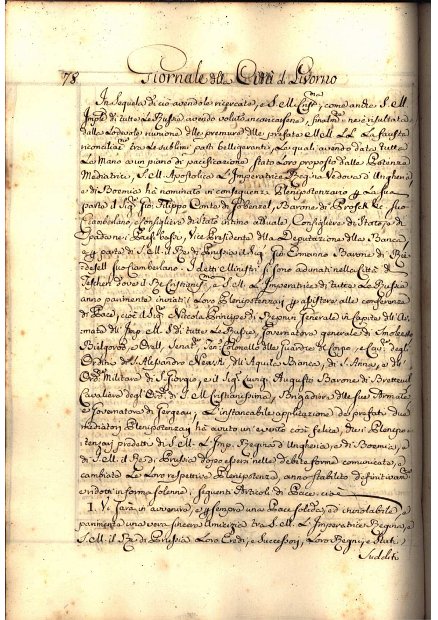 78 Giornale della Città di Livorno
In sequela di ciò avendole ricercate, e S. M. Crisma, come anche S. M.
Imple di tutte le Russie avendo voluto incaricarsene, finalmte ne è risultata
dalla Lodevole riunione delle premure delle prefate MM. LL. La fausta
riconciliazne tra Le sublimi parti belligeranti, Le quali avendo data tutte
La Mano a un piano di pacificazione stato Loro proposto dalle Potenze
Mediatrici, S. M. Apostolica L'Imperatrice Regina Vedova di Ungheria,
e di Boemia hà nominato in conseguenza Plenipotenziario p La sua
parte il Sigr Gio: Filippo Conte di Cobenzel, Barone di Prosek &c suo
Ciamberlano, e Consigliere di stato intimo attuale, Consigliere di Stato, e di
Spada ne i Paesi bassi, Vice Presidente della Deputazione della Banca,
e p parte di S. M. il Re di Prussia il Sigr Gio: Ermanno Barone di Rie-
desell suo Ciamberlano. I detti Ministri si sono adunati nella Città di
Teschen dove il Re Cristmo, e S. M. L'Imperatrice di tutte le Russie
anno parimente inviati i Loro Plenipotenzarj p assistere alle conferenze
di Pace, cioè il Sigr Niccola Principe di Repnin Generale in Capite dell'Ar-
mata dell'Imp. M. S. di tutte Le Russie, Governatore generale di Smolesko
Bielgorod, e Orell, Senatre, Ten: Colonnello delle Guardie del Corpo, e Cavre degli
Ordini di S. Alessandro Newski, dell'Aquila Bianca, di S. Anna, e dell'
Orde Militare di S. Giorgio, e il Sigr Luigi Augusto Barone di Breteuil
Cavaliere degli Ordni di S. M. Cristianissima, Brigadiere delle sue Armate
e Governatore di . L'instancabile applicazione dei prefati due
Mediatori Plenipotenzarj hà avuto un evento così felice, che i Plenipo-
tenzarj predetti di S. M. L'Imp. Regina di Ungheria, e di Boemia, e
di S. M. il Re di Prussia dopo essersi nelle debite forme comunicate, e
cambiate Le Loro respettive Plenipotenze, anno stabilito definitivam.
e ridotti in forma solenne i seguenti Articoli di Pace, cioè
I. Vi sarà in avvenire, e p sempre una Pace solida, ed inviolabile, e
parimente una vera sincera Amicizia tra S. M. L'Imperatrice Regina, e
S. M. il Re di Prussia Loro Eredi, e Successori, Loro Regni, e Stati,
Sudditi